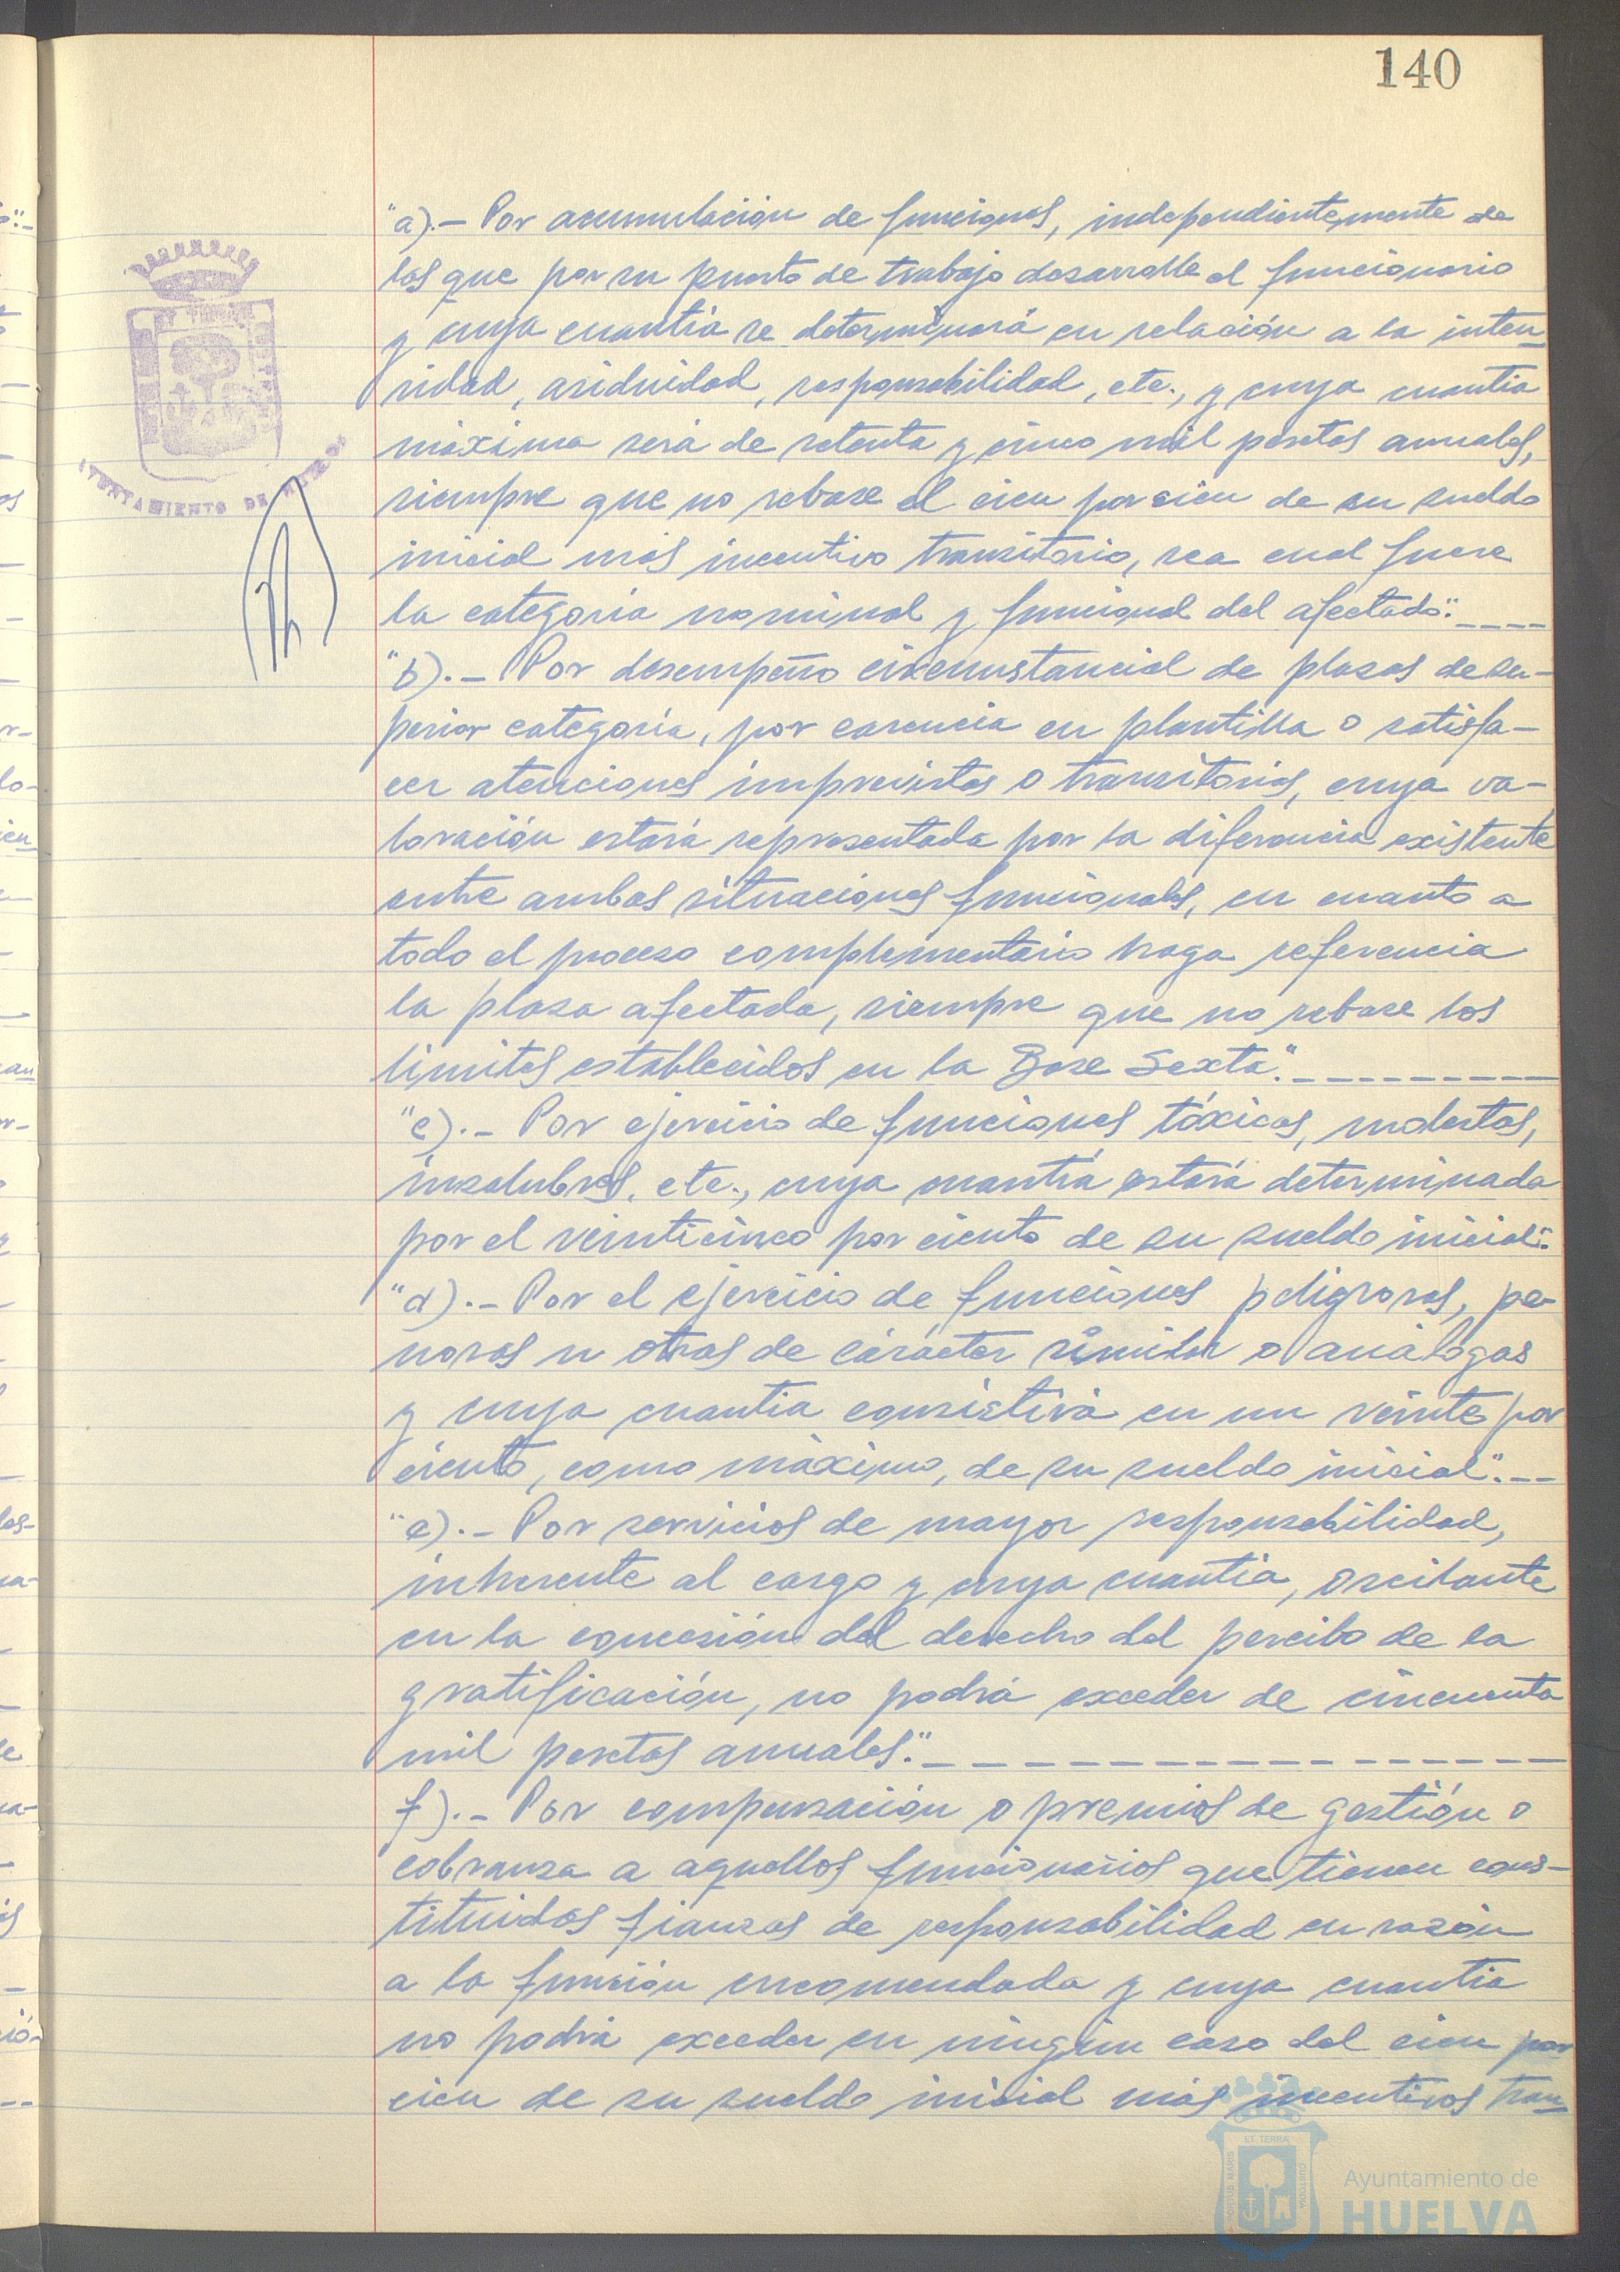 140
"a).- Por acumulación de funciones, independientemente de
las que por su puesto de trabajo desarrolle el funcionario
y cuya cuantía se determinará en relación a la inten-
sidad, asiduidad, responsabilidad, etc., y cuya cuantía
máxima será de setenta y cinco mil pesetas anuales,
siempre que no rebase el cien por cien de su sueldo
inicial más incentivo transitorio, sea cual fuere
la categoría nominal y funcional del afectado".----
"b).- Por desempeño circunstancial de plazas de su-
perior categoría, por carencia en plantilla o satisfa-
cer atenciones imprevistas o transitorias, cuya va-
loración estará representada por la diferencia existente
entre ambas situaciones funcionales, en cuanto a
todo el proceso complementario haga referencia
la plaza afectada, siempre que no rebase los
límites establecidos en la Base Sexta".---------
"c).- Por ejercicio de funciones tóxicas, molestas,
insalubres, etc., cuya cuantía estará determinada
por el veinticinco por ciento de su sueldo inicial".
"d).- Por el ejercicio de funciones peligrosas, pe-
nosas u otras de carácter similar o análogas
y cuya cuantía consistirá en un veinte por
ciento, como máximo, de su sueldo inicial".--
"e).- Por servicios de mayor responsabilidad,
inherente al cargo y cuya cuantía, oscilante
en la concesión del derecho del percibo de la
gratificación, no podrá exceder de cincuenta
mil pesetas anuales".----------------
f).- Por compensación o premios de gestión o
cobranza a aquellos funcionarios que tienen cons-
tituidas fianzas de responsabilidad en razón
a la función encomendada y cuya cuantía
no podrá exceder en ningún caso del cien por
cien de su sueldo inicial más incentivos tran-
AYUNTAMIENTO DE HUELVA
PORTUS MARIS ET TERRA CUSTODIA
Ayuntamiento de
HUELVA